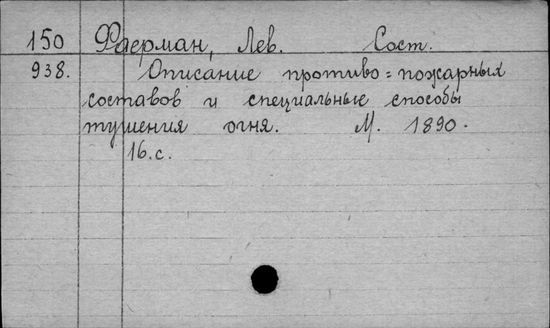 150 Фаерман, Лев. Сост.
938. Описание противо=пожарных
составов и специальные способы
тушения огня. М. 1890.
16.с.